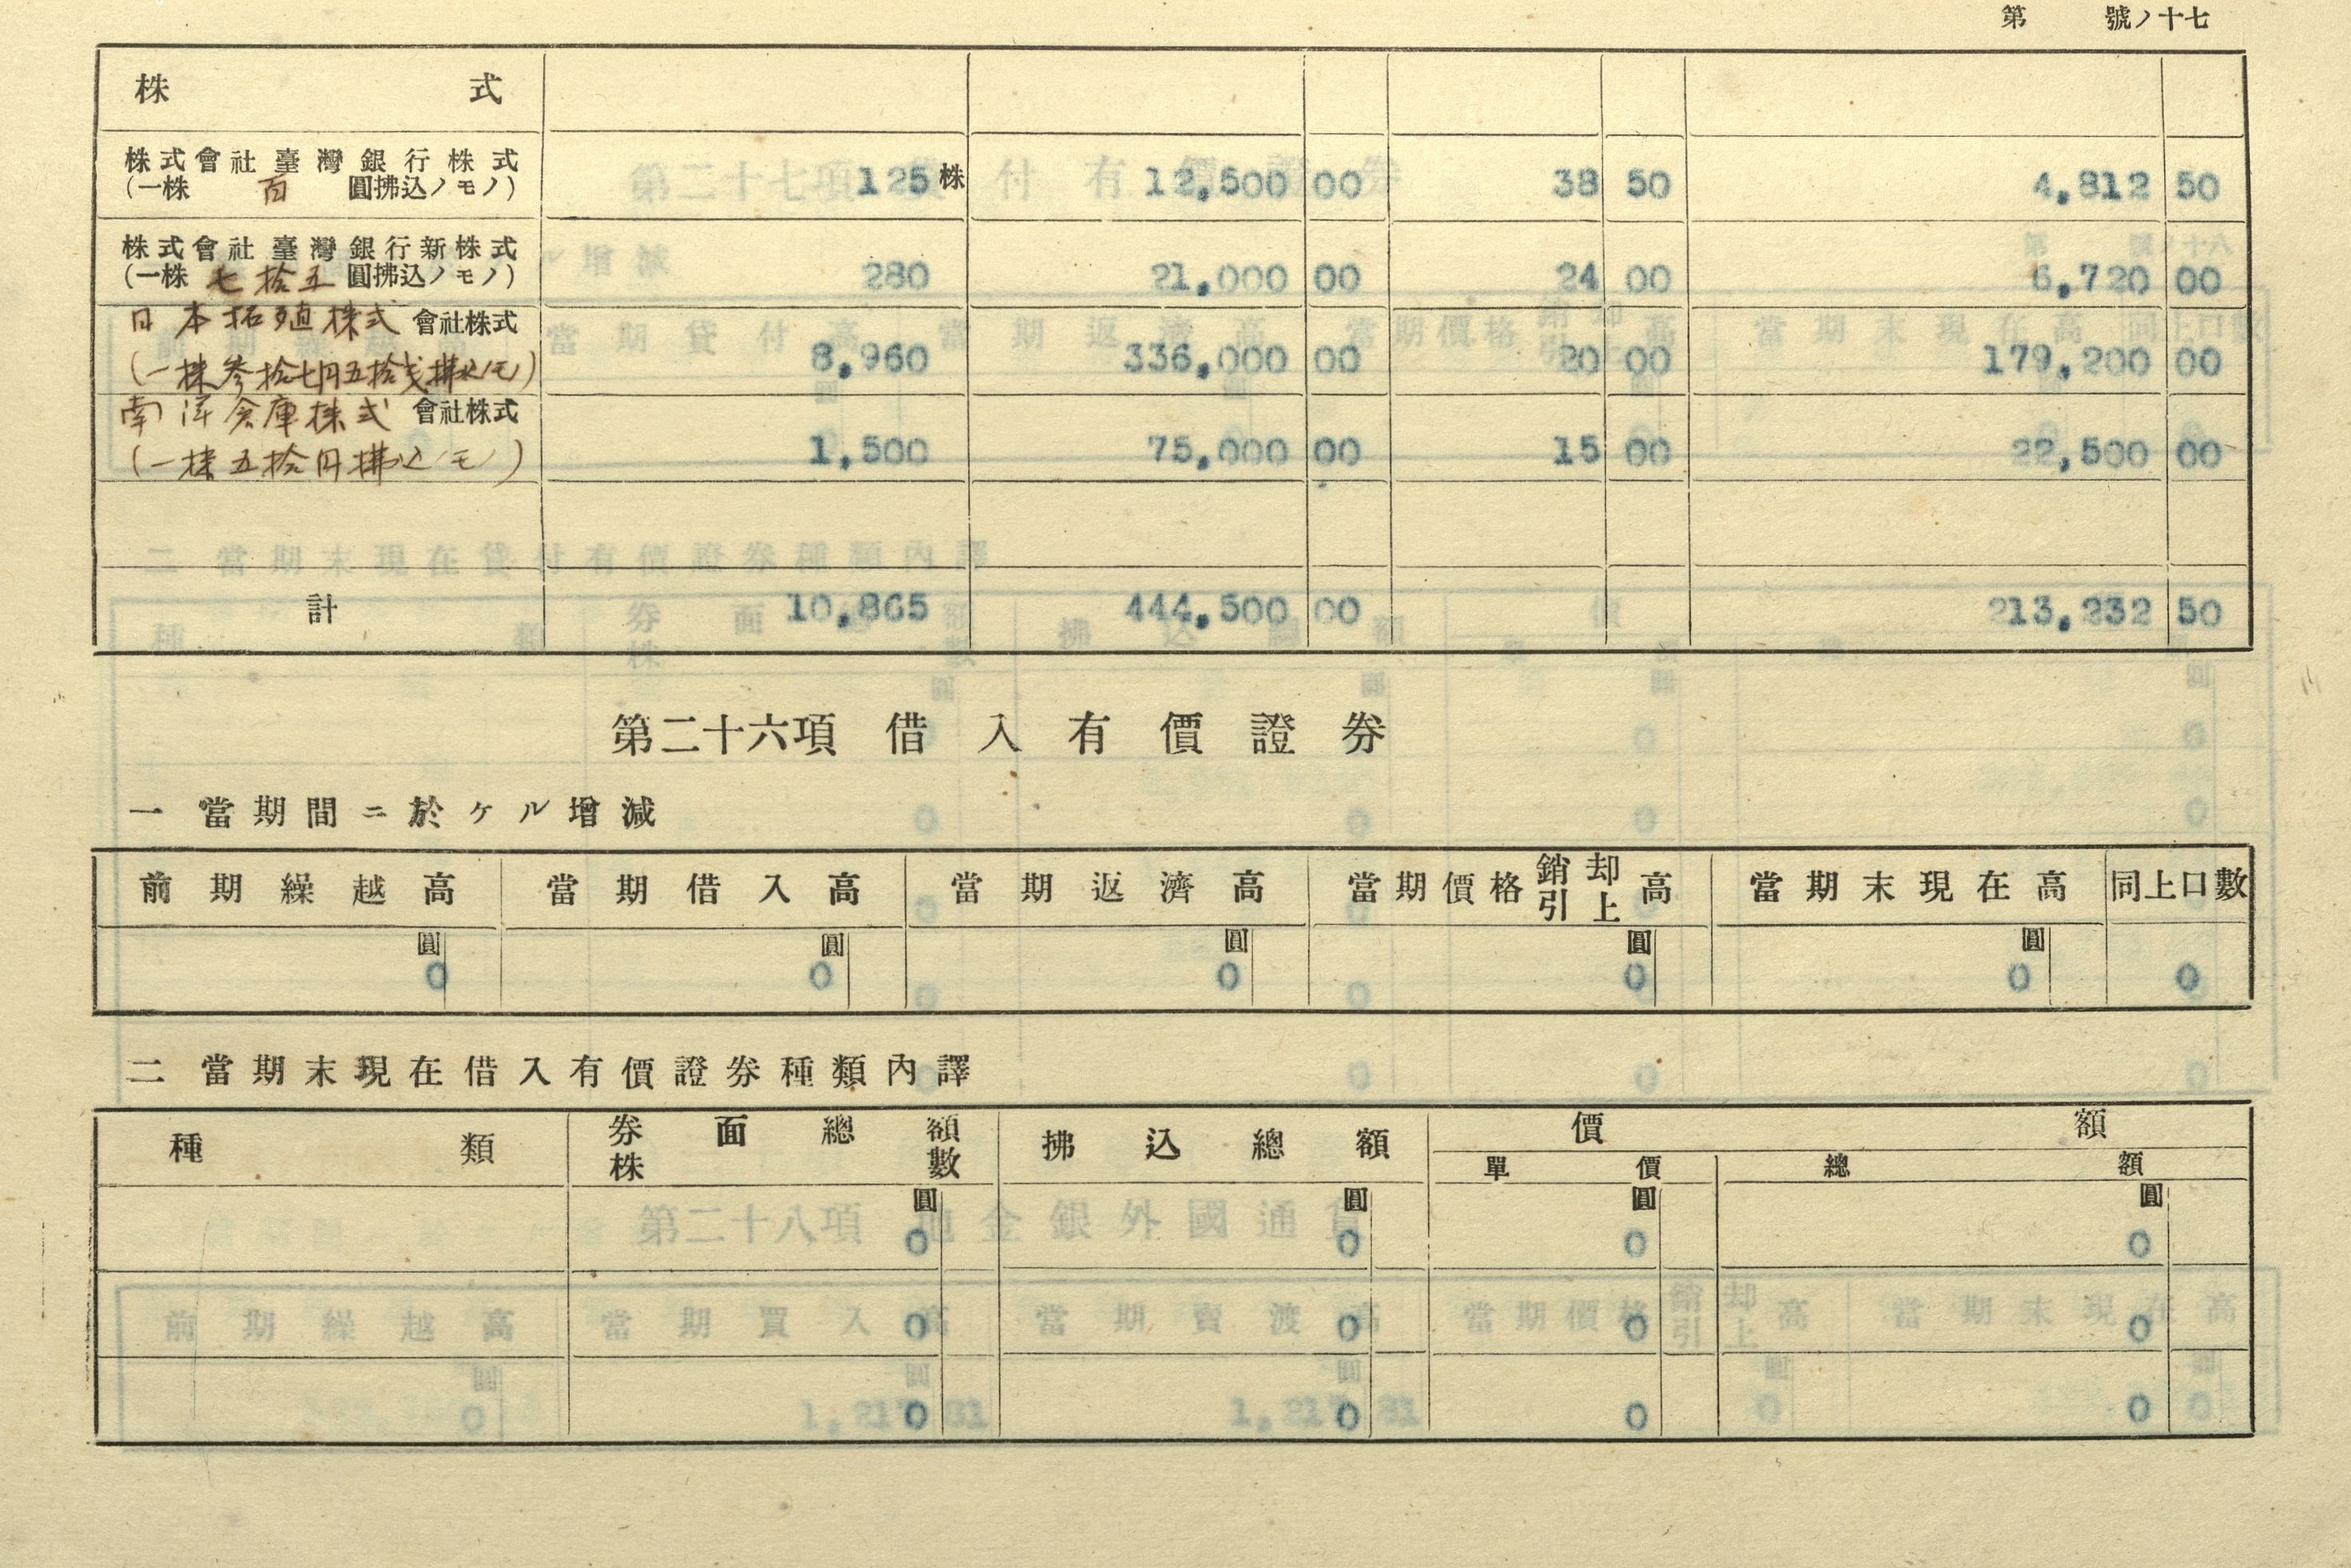 第 號ノ十七
株式
株式會社臺灣銀行株式
(一株 百 圓拂込ノモノ) 125株 12,500 00 38 50 4,812 50
株式會社臺灣銀行新株式
(一株 七拾五 圓拂込ノモノ) 280 21,000 00 24 00 6,720 00
日本拓殖株式會社株式
(一株參拾七円五拾戋拂込ノモノ) 8,960 336,000 00 20 00 179,200 00
南洋倉庫株式會社株式
(一株五拾円拂込ノモノ) 1,500 75,000 00 15 00 22,500 00
計 10,865 444,500 00 213,232 50
第二十六項 借入有價證券
一 當期間ニ於ケル增減
前期繰越高 當期借入高 當期返濟高 當期價格銷却引上高 當期末現在高 同上口數
圓 圓 圓 圓 圓
0 0 0 0 0 0
二 當期末現在借入有價證券種類內譯
種類 券面總額 株數 拂込總額 價額
單價 總額
圓 圓 圓 圓
0 0 0 0
0 0 0 0
0 0 0 0